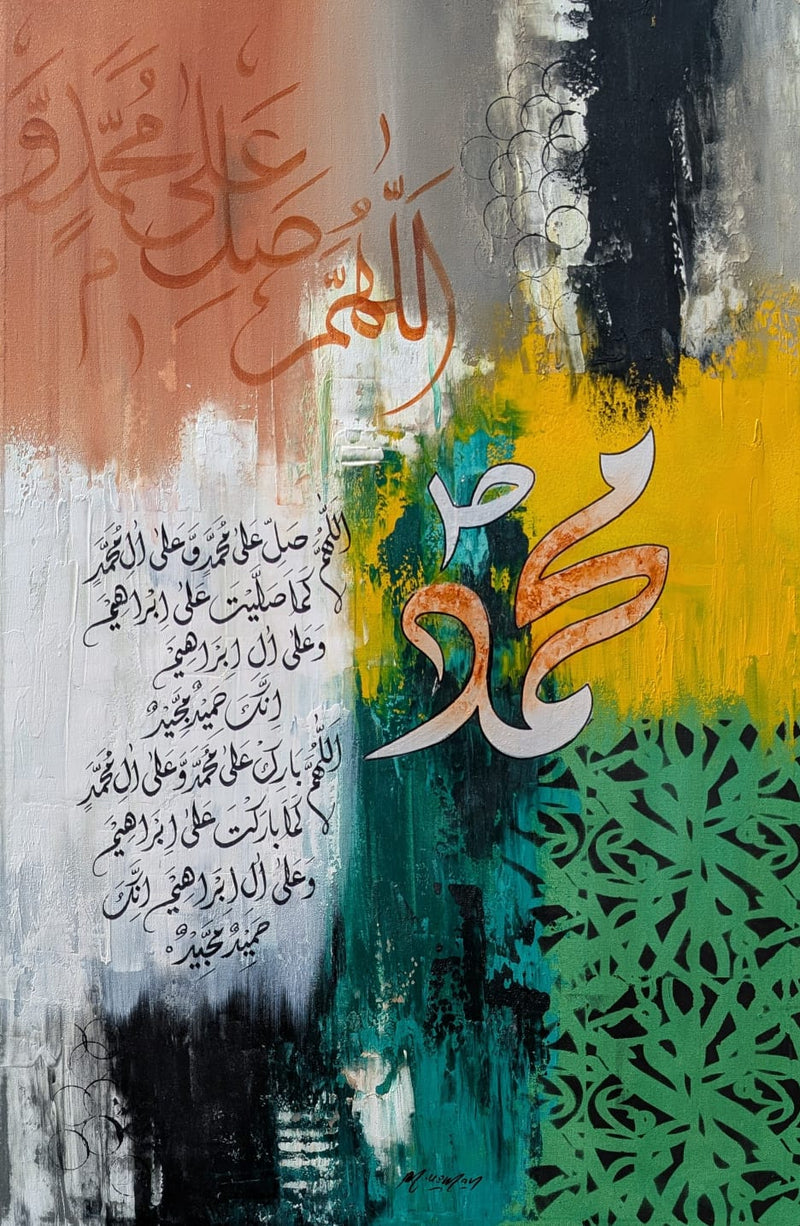 اللّٰهُمَّ صَلِّ عَلٰى مُحَمَّدٍ وَّ
مُحَمَّد ؐ
اَللّٰهُمَّ صَلِّ عَلٰى مُحَمَّدٍ وَّ عَلٰى اٰلِ مُحَمَّدٍ
كَمَا صَلَّيْتَ عَلٰى اِبْرَاهِيْمَ
وَعَلٰى اٰلِ اِبْرَاهِيْمَ
اِنَّكَ حَمِيْدٌ مَّجِيْدٌ
اَللّٰهُمَّ بَارِكْ عَلٰى مُحَمَّدٍ وَّ عَلٰى اٰلِ مُحَمَّدٍ
كَمَا بَارَكْتَ عَلٰى اِبْرَاهِيْمَ
وَعَلٰى اٰلِ اِبْرَاهِيْمَ اِنَّكَ
حَمِيْدٌ مَّجِيْدٌ